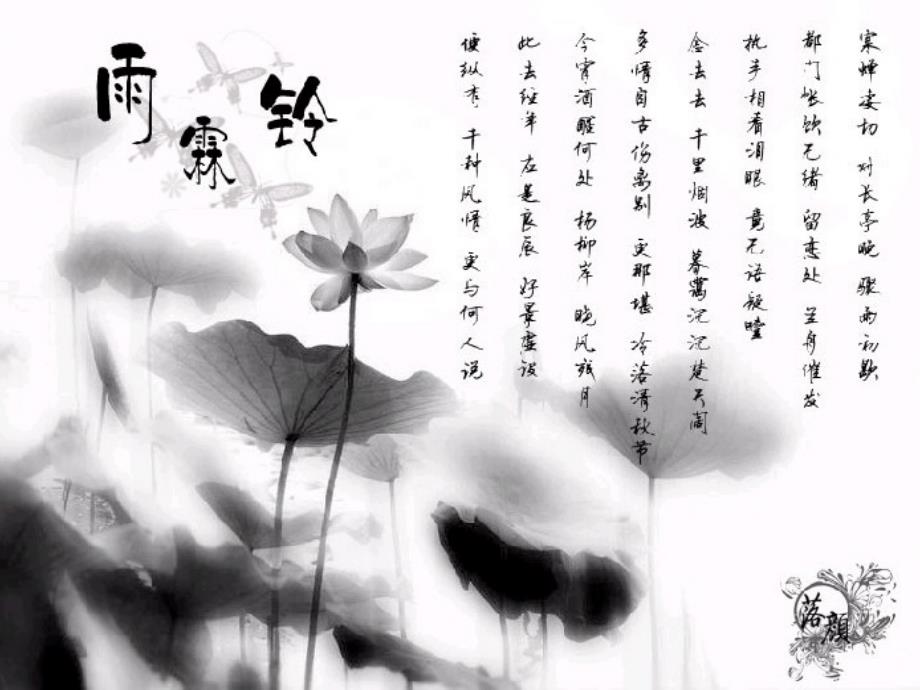 雨霖铃
寒蝉凄切 对长亭晚 骤雨初歇
都门帐饮无绪 留恋处 兰舟催发
执手相看泪眼 竟无语凝噎
念去去 千里烟波 暮霭沉沉楚天阔
多情自古伤离别 更那堪 冷落清秋节
今宵酒醒何处 杨柳岸 晓风残月
此去经年 应是良辰 好景虚设
便纵有 千种风情 更与何人说
落顏